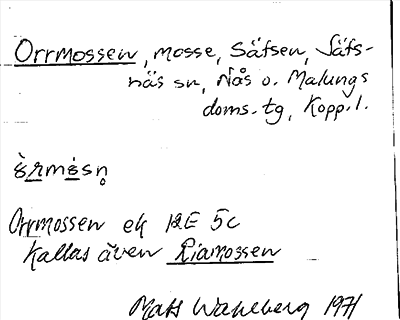 Orrmossen, mosse, Säfsen, Säfs-
näs sn, Nås o. Malungs
doms. tg, Kopp. l.
Orrmossen ek 12E 5c
Kallas även Riamossen
Mats Wahlberg 1971